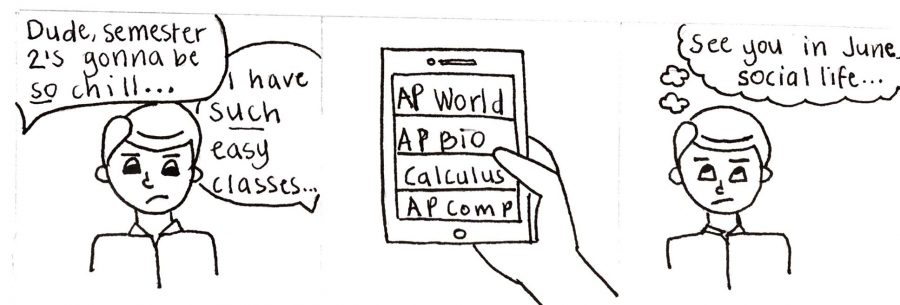 Dude, semester
2's gonna be
so chill...
I have
such
easy
classes...
AP World
AP BiO
Calculus
AP Comp
See you in June,
social life...